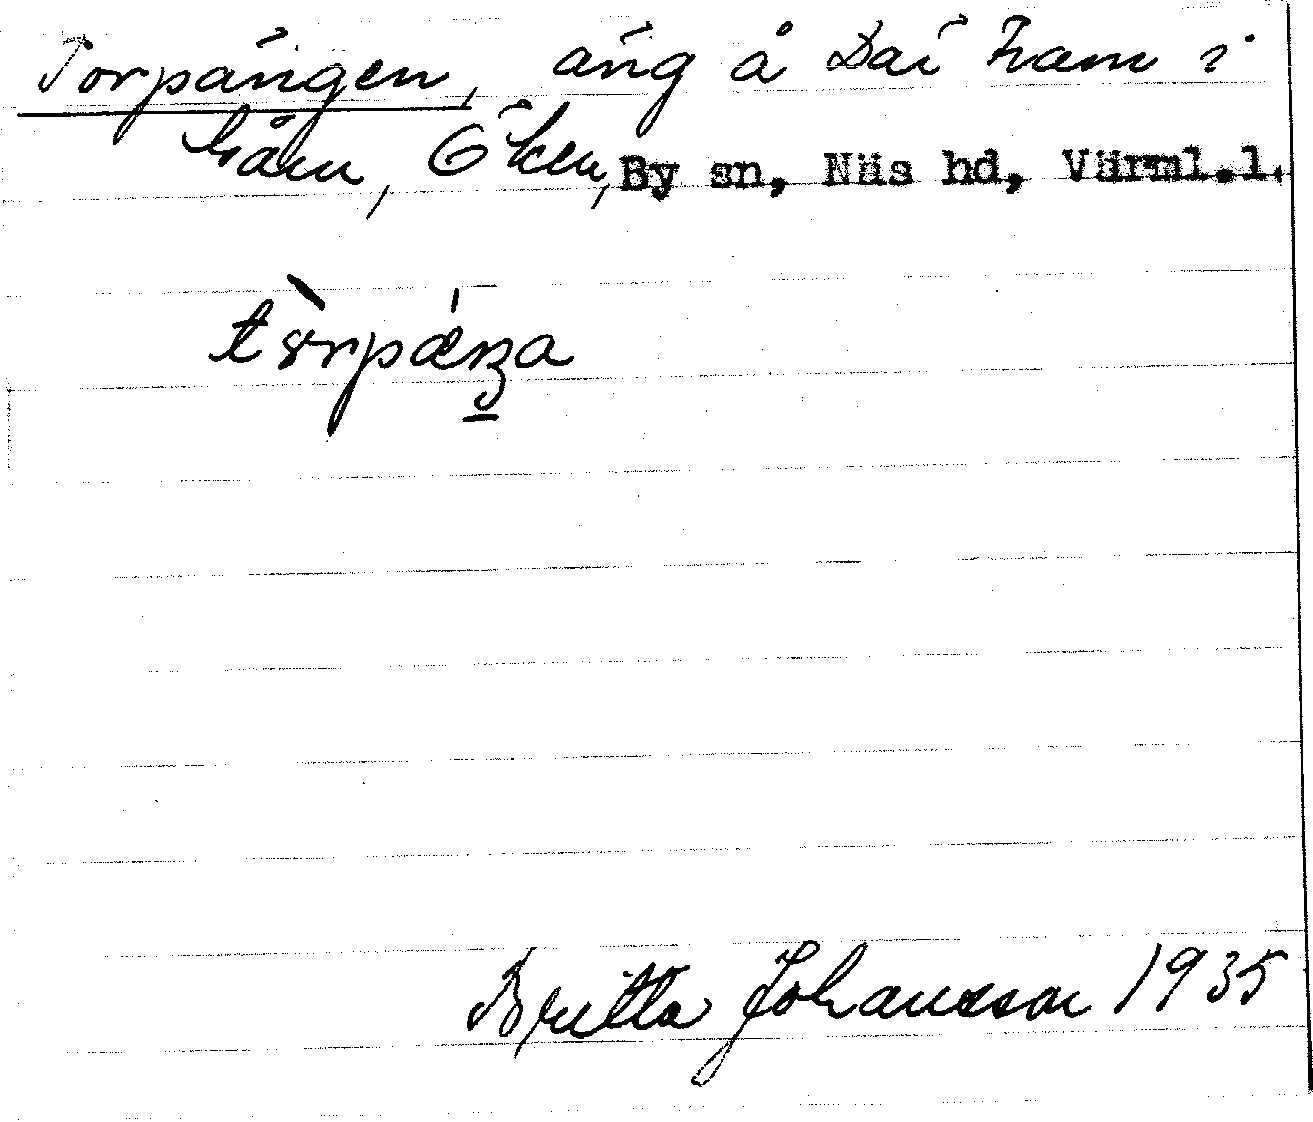 Torpängen, äng å Där fram i
Gåm, Öken, By sn, Näs hd, Värml.l.
tòrpǽŋa
Britta Johansson 1935